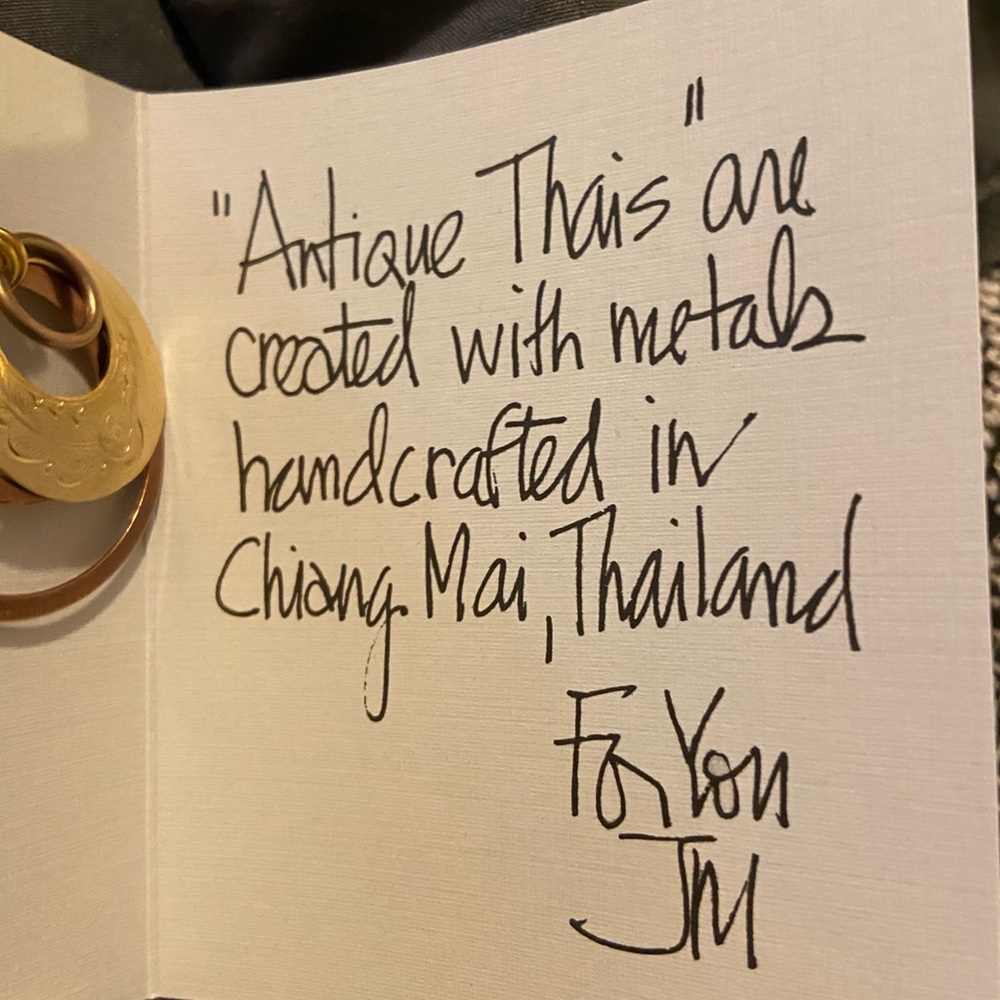 "Antique Thais" are
created with metals
handcrafted in
Chiang Mai, Thailand
For You
JM